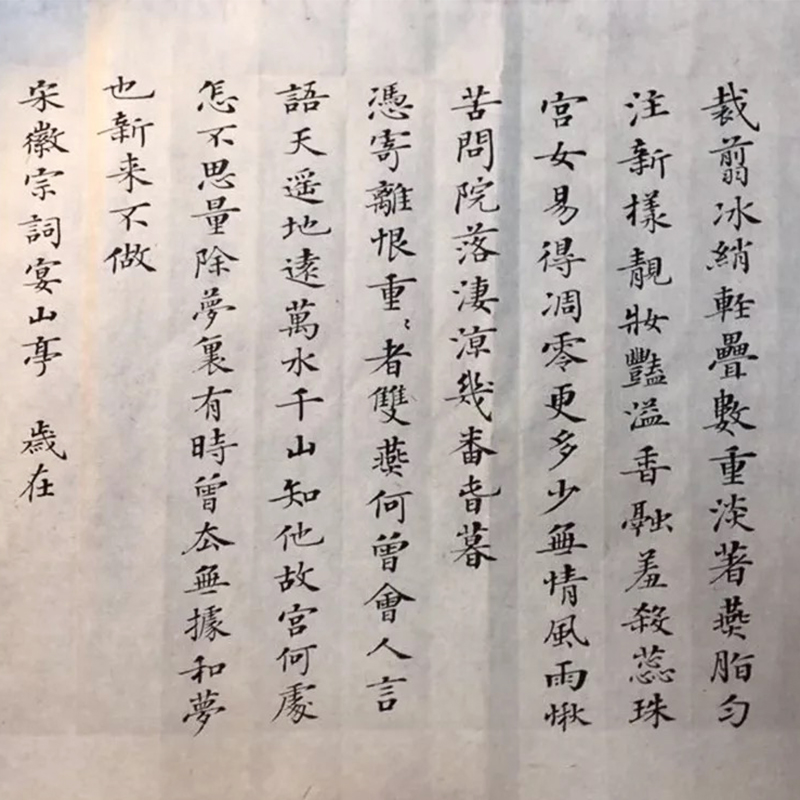 裁翦冰綃輕疊數重淡著燕脂勻
注新樣靚妝豔溢香融羞殺蕊珠
宮女易得凋零更多少無情風雨愁
苦問院落淒涼幾番春暮
憑寄離恨重〻者雙燕何曾會人言
語天遥地遠萬水千山知他故宮何處
怎不思量除夢裏有時曾去無據和夢
也新来不做
宋徽宗詞宴山亭 歲在